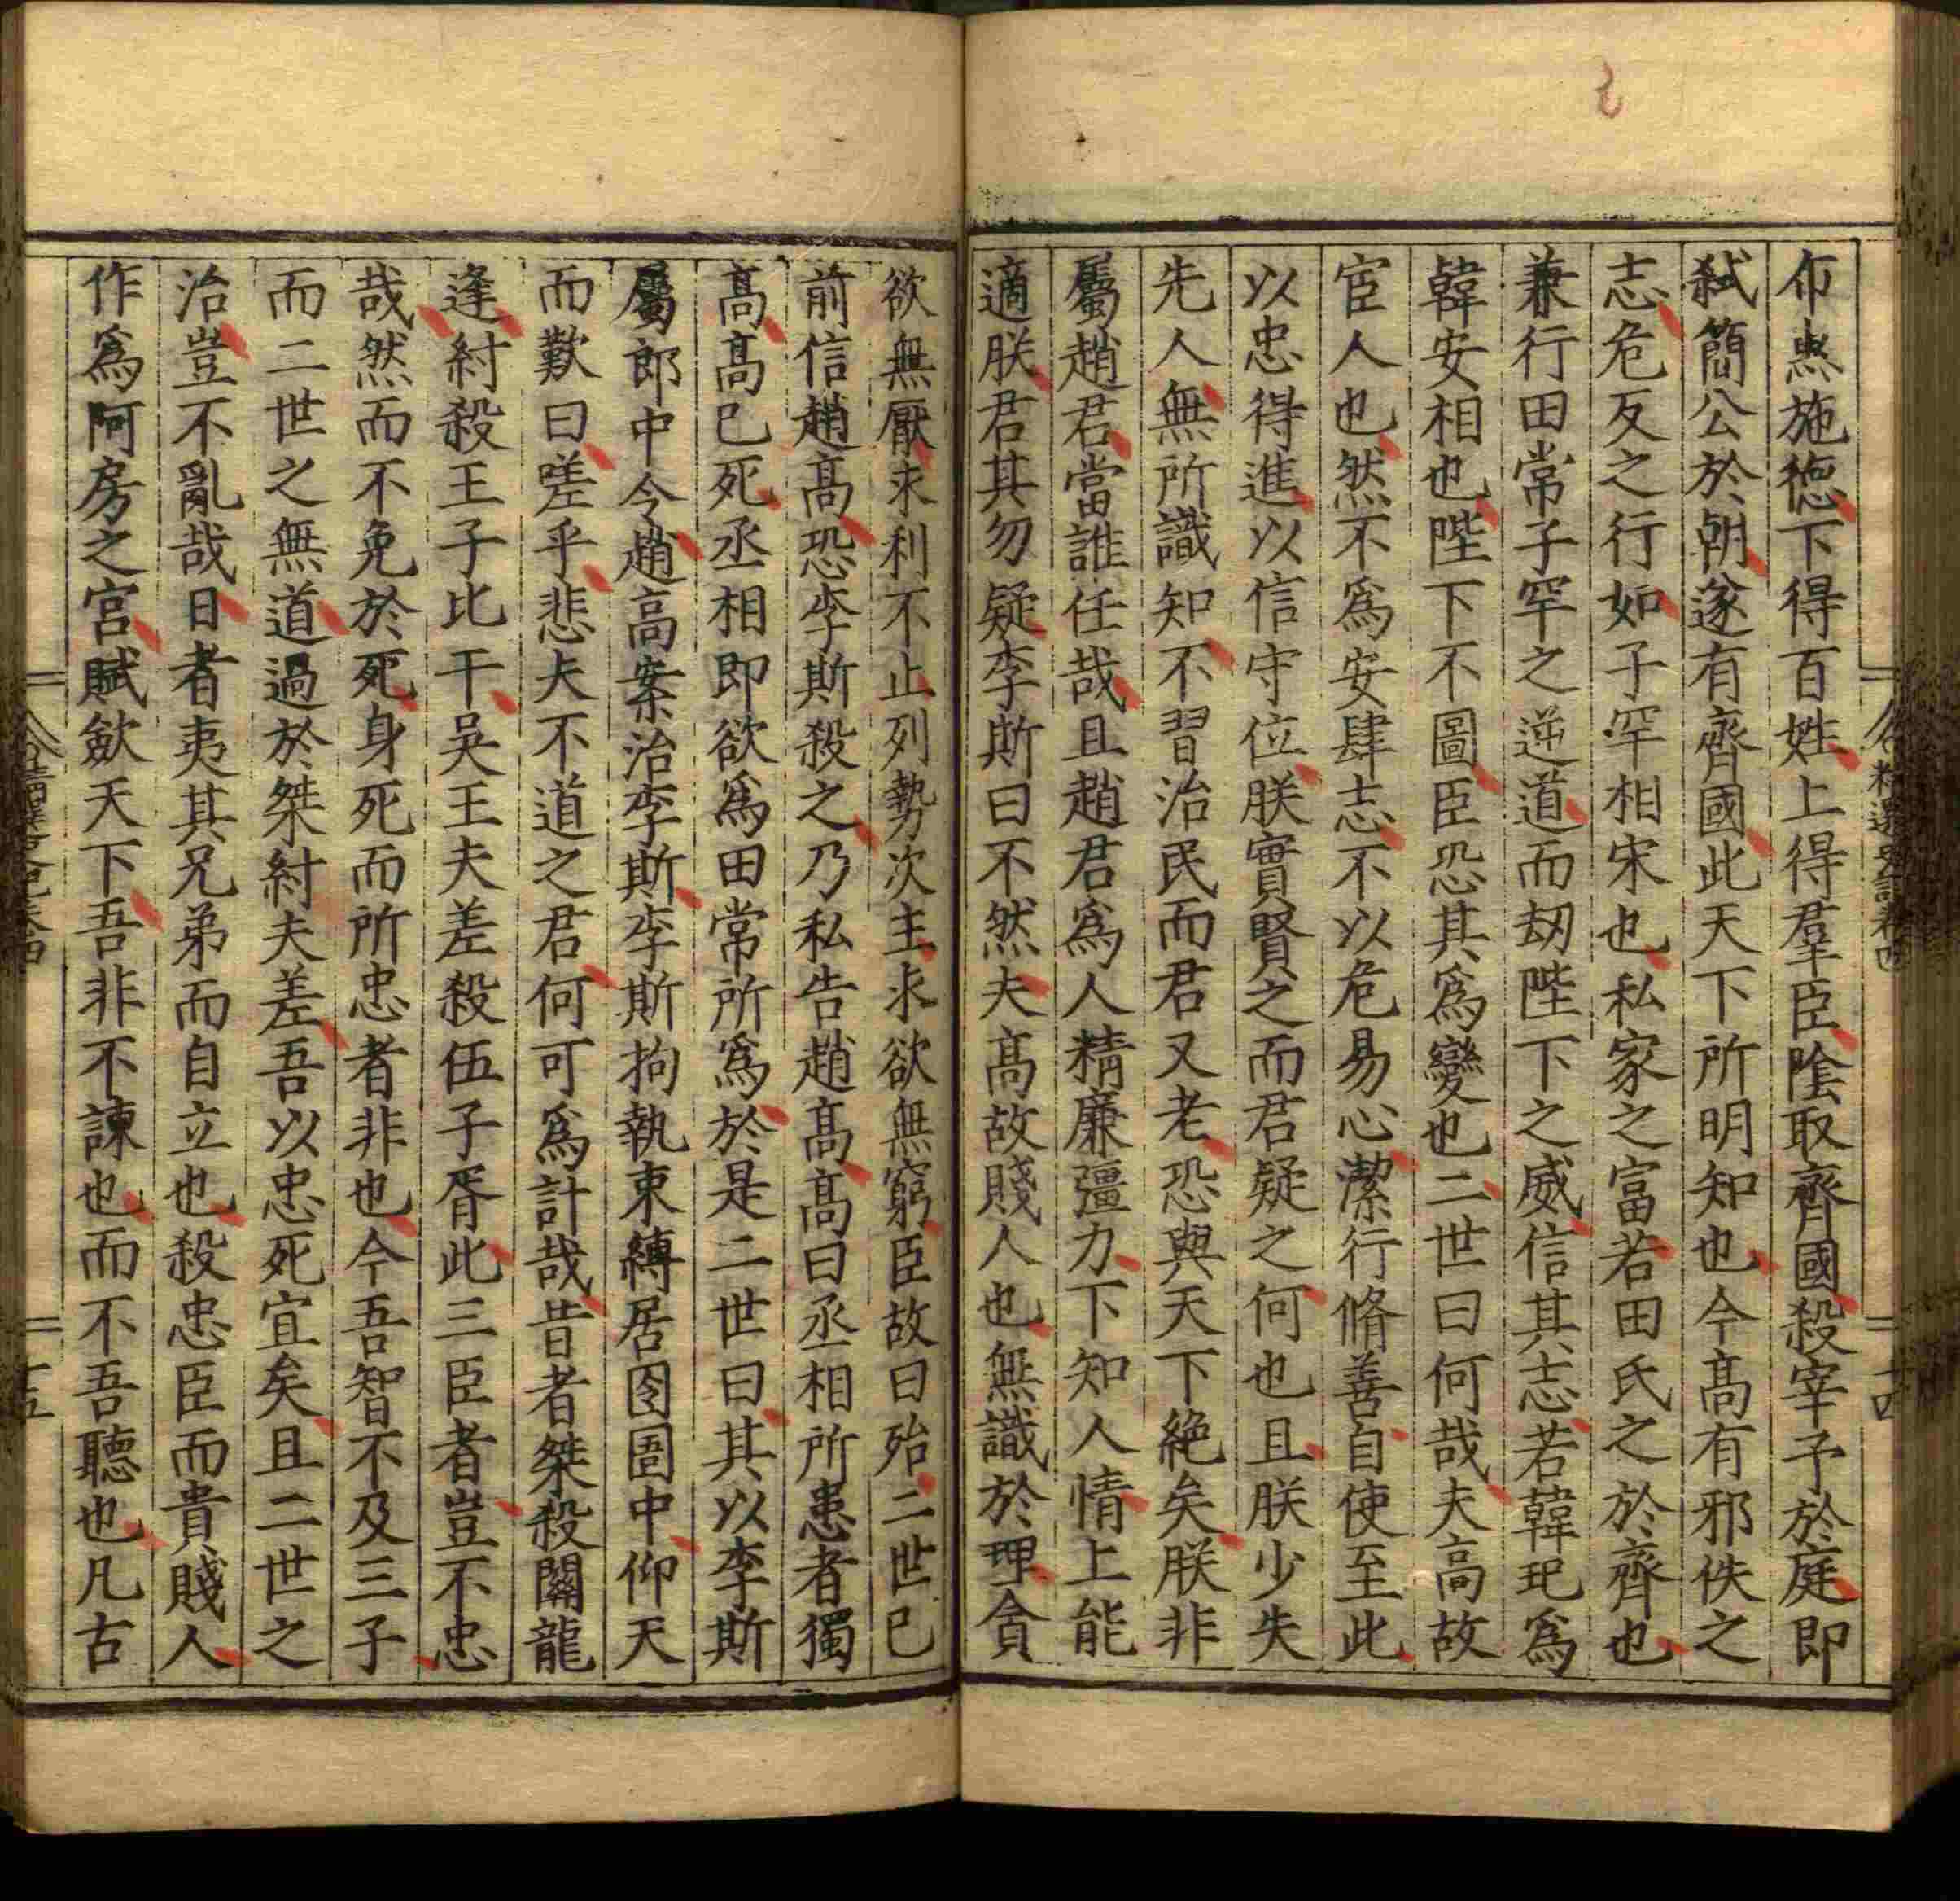 布惠施德下得百姓上得羣臣陰取齊國殺宰予於庭即
弑簡公於朝遂有齊國此天下所明知也今髙有邪佚之
志危反之行如子罕相宋也私家之富若田氏之於齊也
兼行田常子罕之逆道而刼陛下之威信其志若韓玘爲
韓安相也陛下不圖臣恐其爲變也二世曰何哉夫高故
宦人也然不爲安肆志不以危易心潔行脩善自使至此
以忠得進以信守位朕實賢之而君疑之何也且朕少失
先人無所識知不習治民而君又老恐與天下絶矣朕非
屬趙君當誰任哉且趙君爲人精廉彊力下知人情上能
適朕君其勿疑李斯曰不然夫高故賤人也無識於理貪
欲無厭求利不止列勢次主求欲無窮臣故曰殆二世已
前信趙高恐李斯殺之乃私告趙髙髙曰丞相所患者獨
髙髙已死丞相即欲爲田常所爲於是二世曰其以李斯
屬郎中令趙高案治李斯李斯拘執束縛居囹圄中仰天
而歎曰嗟乎悲夫不道之君何可爲計哉昔者桀殺關龍
逢紂殺王子比干吳王夫差殺伍子胥此三臣者豈不忠
哉然而不免於死身死而所忠者非也今吾智不及三子
而二世之無道過於桀紂夫差吾以忠死宜矣且二世之
治豈不亂哉日者夷其兄弟而自立也殺忠臣而貴賤人
作爲阿房之宮賦歛天下吾非不諫也而不吾聽也凡古
精選史記卷四
十四
精選史記卷四
十五